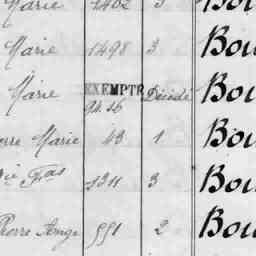 Marie 1402 3 Bou
Marie 1498 3 Bou
Marie EXEMPTÉ Décédé Bou
94.26
erre Marie 43 1 Bou
ie Fas 1311 3 Bou
Pierre Ange 991 2 Bou